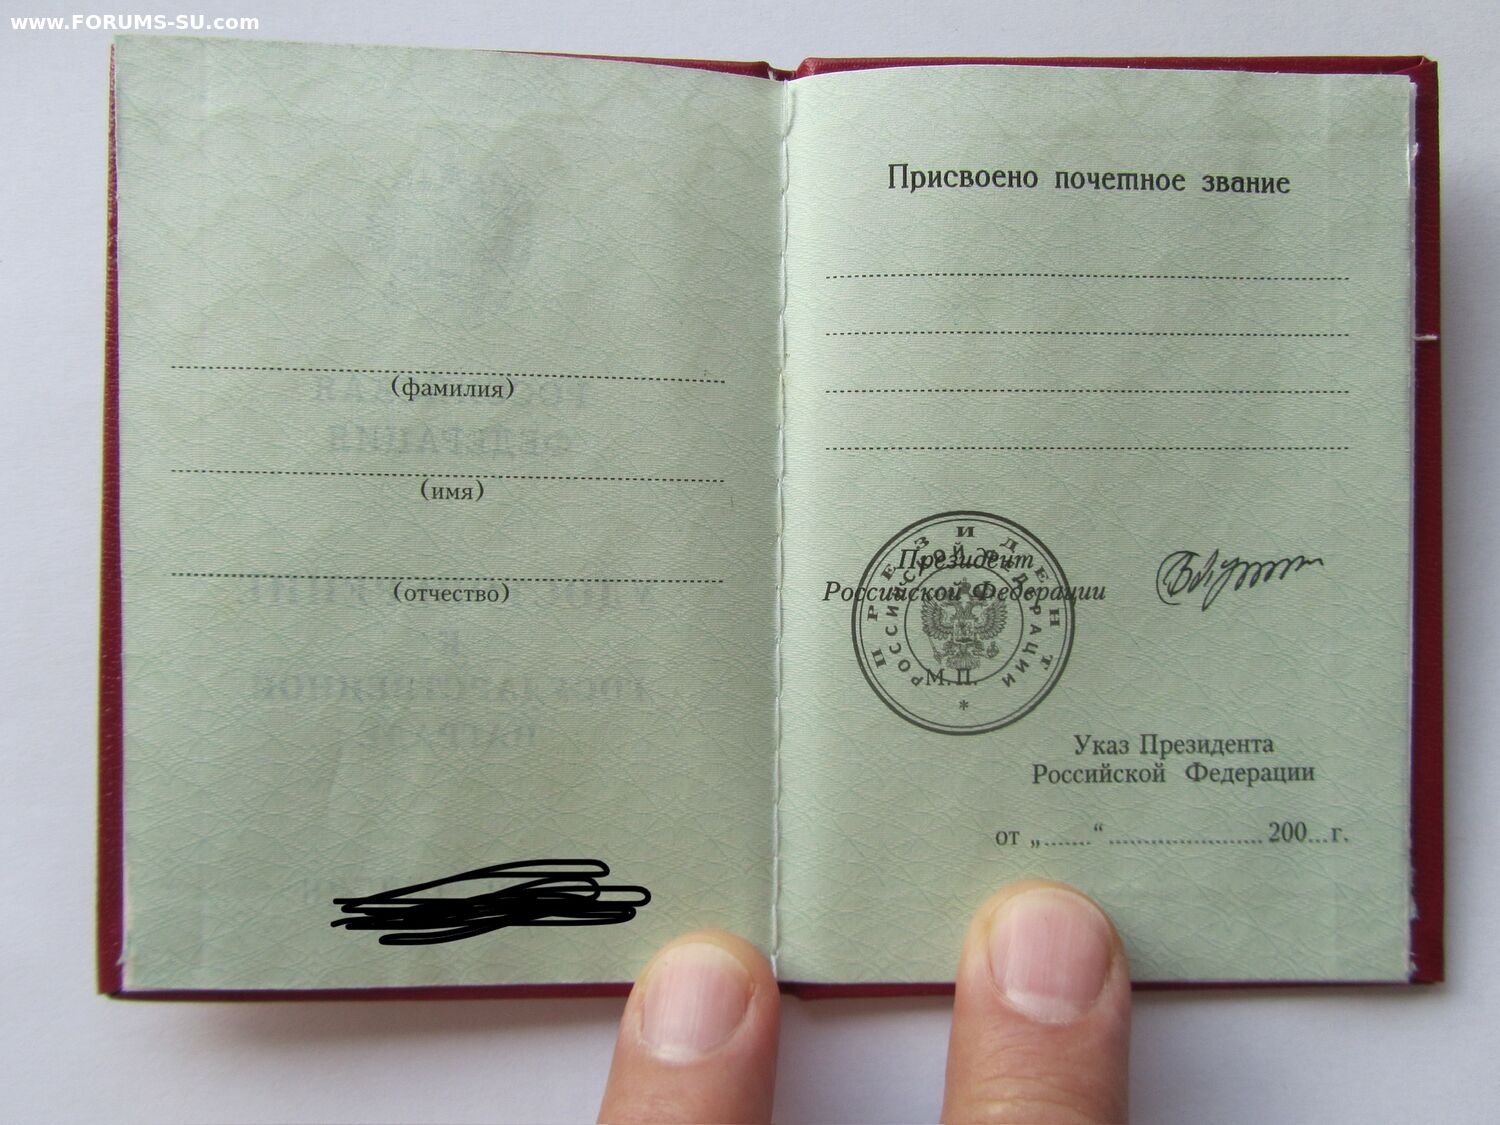 www.FORUMS-SU.com
(фамилия)
(имя)
(отчество)
Присвоено почетное звание
Президент
Российской Федерации
ПРЕЗИДЕНТ
РОССИЙСКОЙ ФЕДЕРАЦИИ
*
М.П.
Указ Президента
Российской Федерации
от „.......“ ....................... 200...г.